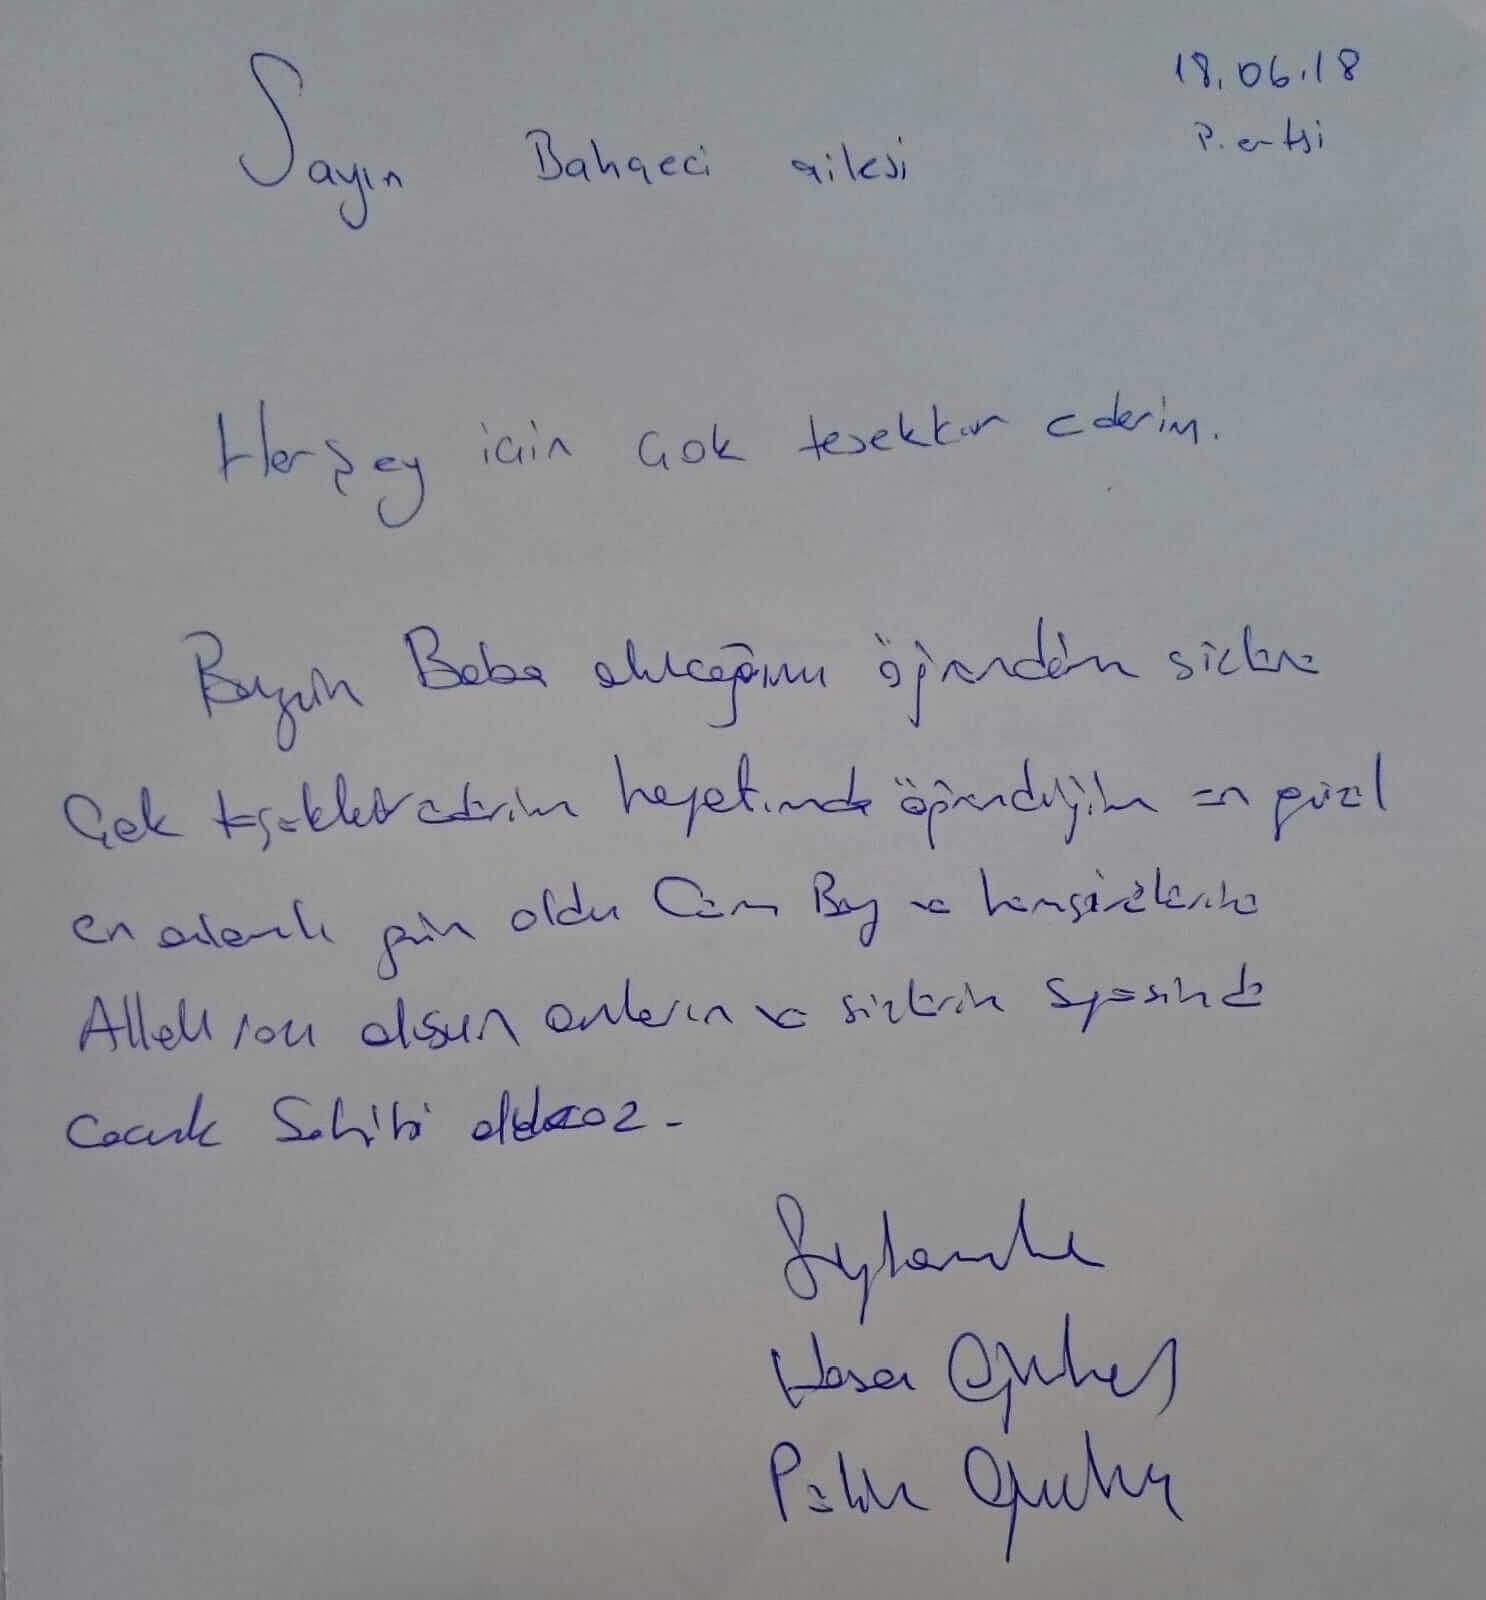 18.06.18
P.ertsi
Sayın Bahçeci ailesi
Herşey için çok teşekkür ederim.
Bugün Baba olacağımı öğrendim sizlere
Çok teşekkür ederim hayatımda öğrendiğim en güzel
en anlamlı gün oldu Cem Bey ve hemşirelerine
Allah razı olsun onların ve sizlerin sayesinde
Çocuk Sahibi olduk
Hasan